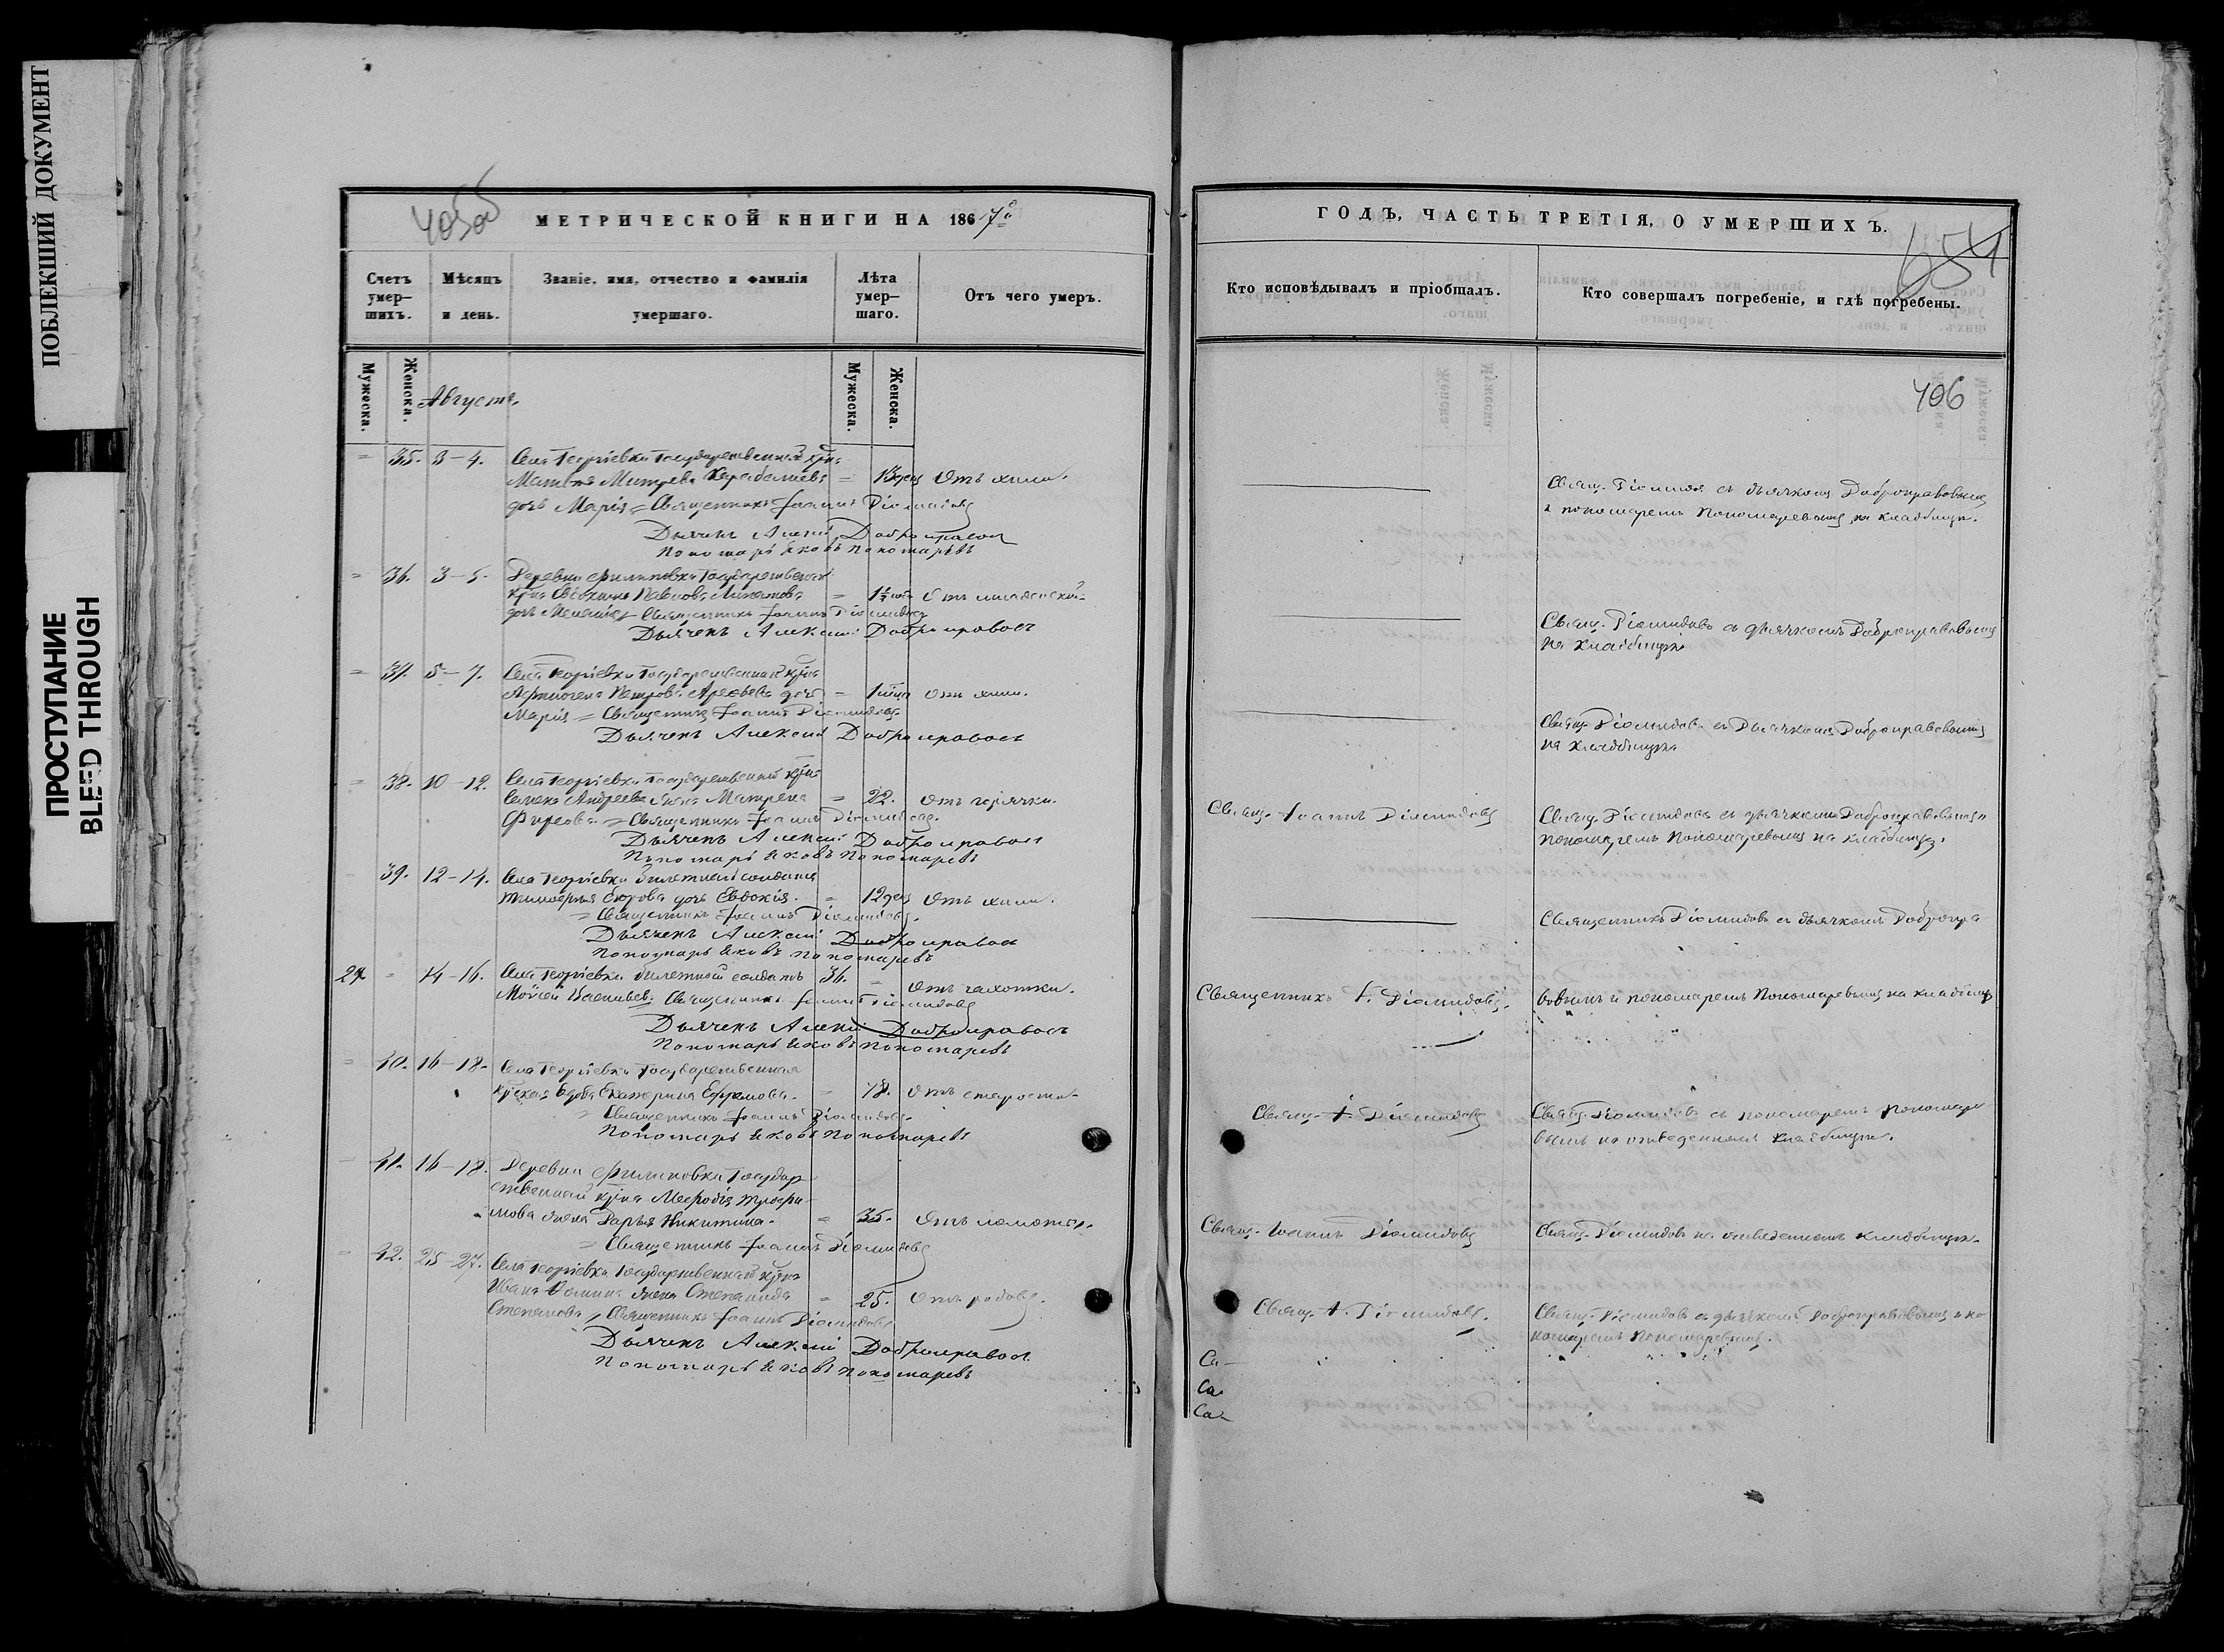 ПОБЛЕКШИЙ ДОКУМЕНТ
ПРОСТУПАНИЕ
BLEED THROUGH
405об
МЕТРИЧЕСКОЙ КНИГИ НА 1867й
Счетъ умер-шихъ.
Мѣсяцъ и день.
Званіе, имя, отчество и фамилія умершаго.
Лѣта умер-шаго.
Отъ чего умеръ.
Мужеска.
Женска.
Августа.
Мужеска.
Женска.
= 35. 3-4. Села Георгіевки Государственнаго крна
Матвѣя Митрева = 13 дец Отъ
дочь Марія = Священникъ Іоаннъ Діомидовъ
Дьячекъ Алексій Добронравовъ
Пономарь Яковъ Пономаревъ
= 36. 3-5. Деревни Филиповки Государственнаго
крна Павлова = 1½ Отъ младенской
дочь = Священникъ Іоаннъ Діомидовъ
Дьячекъ Алексій Добронравовъ
= 37. 5-7. Села Георгіевки Государственнаго крна
Петрова дочь = Отъ
Марія = Священникъ Іоаннъ Діомидовъ
Дьячекъ Алексій Добронравовъ
= 38. 10-12. Села Георгіевки Государственнаго крна
Семена Андреева жена Матрена = 22. Отъ горячки.
Фирсова = Священникъ Іоаннъ Діомидовъ.
Дьячекъ Алексій Добронравовъ
Пономарь Яковъ Пономаревъ
39. 12-14. Села Георгіевки билетнаго солдата
Тимофѣя Егорова дочь Евдокія. = 12 дец Отъ
= Священникъ Іоаннъ Діомидовъ.
Дьячекъ Алексій Добронравовъ
Пономарь Яковъ Пономаревъ
27 = 14-16. Села Георгіевки билетный солдатъ 36. = Отъ чахотки.
Мойсей Васильевъ. Священникъ Іоаннъ Діомидовъ
Дьячекъ Алексій Добронравовъ
Пономарь Яковъ Пономаревъ
= 40. 16-18. Села Георгіевки Государственная
крская вдова Екатерина Ефремова. = 78. Отъ старости.
= Священникъ Іоаннъ Діомидовъ.
Пономарь Яковъ Пономаревъ
41. 16-18. Деревни Филиповки Государ
ственнаго крна Мефодія Трофи
мова жена Дарья Никитина. = 35. Отъ ломоты.
= Священникъ Іоаннъ Діомидовъ
= 42. 25-27. Села Георгіевки Государственнаго крна
Ивана Фомина жена Степанида = 25. Отъ родовъ.
Степанова = Священникъ Іоаннъ Діомидовъ
Дьячекъ Алексій Добронравовъ
Пономарь Яковъ Пономаревъ
ГОДЪ, ЧАСТЬ ТРЕТІЯ, О УМЕРШИХЪ.
654
Кто исповѣдывалъ и пріобщалъ.
Кто совершалъ погребеніе, и гдѣ погребены.
406
Свящ. Діомидов съ дьячкомъ Добронравовымъ
и пономаремъ Пономаревымъ на кладбищѣ.
Свящ. Діомидовъ съ дьячкомъ Добронравовымъ
на кладбищѣ
Свящ. Діомидовъ съ Дьячкомъ Добронравовымъ
на кладбищѣ
Свящ. Іоаннъ Діомидовъ
Свящ. Діомидовъ съ дьячкомъ Добронравовымъ и
пономаремъ Пономаревымъ на кладбищѣ.
Священникъ Діомидовъ съ дьячкомъ Добронра
Священникъ І. Діомидовъ.
вовымъ и пономаремъ Пономаревымъ на кладбищѣ
Свящ. І. Діомидовъ
Свящ. Діомидовъ съ пономаремъ Пономаре
вымъ на отведенномъ кладбищѣ.
Свящ. Іоаннъ Діомидовъ
Свящ. Діомидовъ на отведенномъ кладбищѣ.
Свящ. І. Діомидовъ.
Свящ. Діомидовъ съ дьячкомъ Добронравовымъ и по
номаремъ Пономаревымъ.
Св-
Св.
Св-